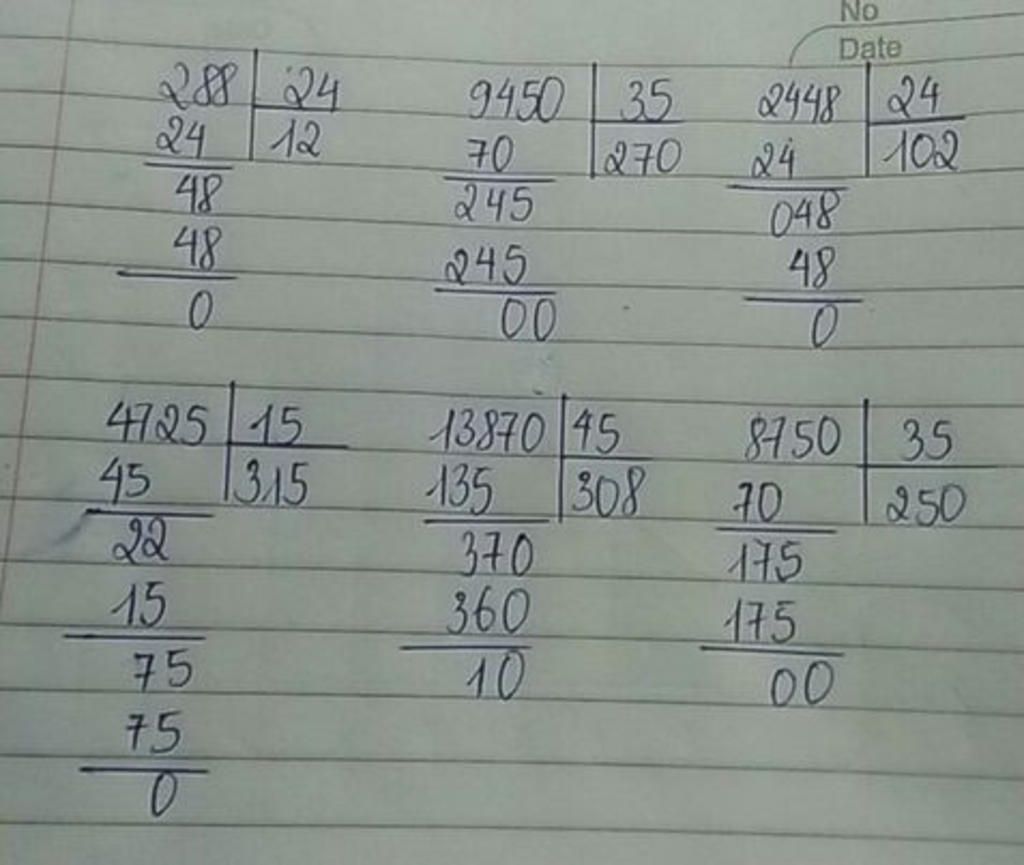 No
Date
288 24
24 12
48
48
0
9450 35
70 270
245
245
00
2448 24
24 102
048
48
0
4725 15
45 315
22
15
75
75
0
13870 45
135 308
370
360
10
8750 35
70 250
175
175
00